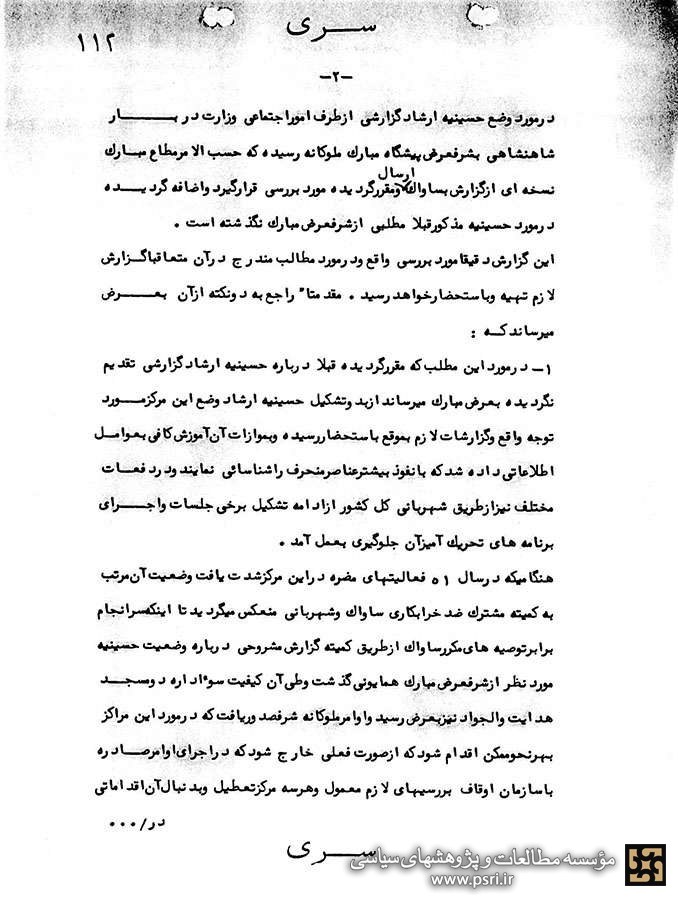 سری
۱۱۲
-۲-
درمورد وضع حسینیه ارشاد گزارشی ازطرف امور اجتماعی وزارت دربار
شاهنشاهی بشرفعرض پیشگاه مبارك ملوکانه رسیده که حسب الامر مطاع مبارك
نسخه ای ازگزارش بساواك ارسال ومقررگردیده مورد بررسی قرارگیرد واضافه گردیده
درمورد حسینیه مذکور قبلا مطلبی ازشرفعرض مبارك نگذشته است .
این گزارش دقیقا مورد بررسی واقع ودرمورد مطالب مندرج درآن متعاقبا گزارش
لازم تهیه وباستحضار خواهد رسید . مقدمتاً راجع به دونکته ازآن بعرض
میرساند که :
۱- درمورد این مطلب که مقررگردیده قبلا درباره حسینیه ارشاد گزارشی تقدیم
نگردیده بعرض مبارك میرساند ازبدو تشکیل حسینیه ارشاد وضع این مرکز مورد
توجه واقع وگزارشات لازم بموقع باستحضار رسیده وبموازات آن آموزش کافی بعوامل
اطلاعاتی داده شد که بانفوذ بیشتر عناصر منحرف را شناسائی نمایند ودر دفعات
مختلف نیز ازطریق شهربانی کل کشور ازادامه تشکیل برخی جلسات واجرای
برنامه های تحریك آمیز آن جلوگیری بعمل آمد .
هنگامیکه درسال ۵۱ فعالیتهای مضره دراین مرکز شدت یافت وضعیت آن مرتب
به کمیته مشترك ضد خرابکاری ساواك وشهربانی منعکس میگردید تا اینکه سرانجام
برابر توصیه های مکرر ساواك ازطریق کمیته گزارش مشروحی درباره وضعیت حسینیه
مورد نظر ازشرفعرض مبارك همایونی گذشت وطی آن کیفیت سوء اداره دومسجد
هدایت والجواد نیز بعرض رسید واوامر ملوکانه شرفصدور یافت که درمورد این مراکز
بهرنحو ممکن اقدام شود که ازصورت فعلی خارج شود که دراجرای اوامر صادره
باسازمان اوقاف بررسیهای لازم معمول وهرسه مرکز تعطیل وبدنبال آن اقداماتی
در/۰۰۰
سری
مؤسسه مطالعات و پژوهشهای سیاسی
www.psri.ir